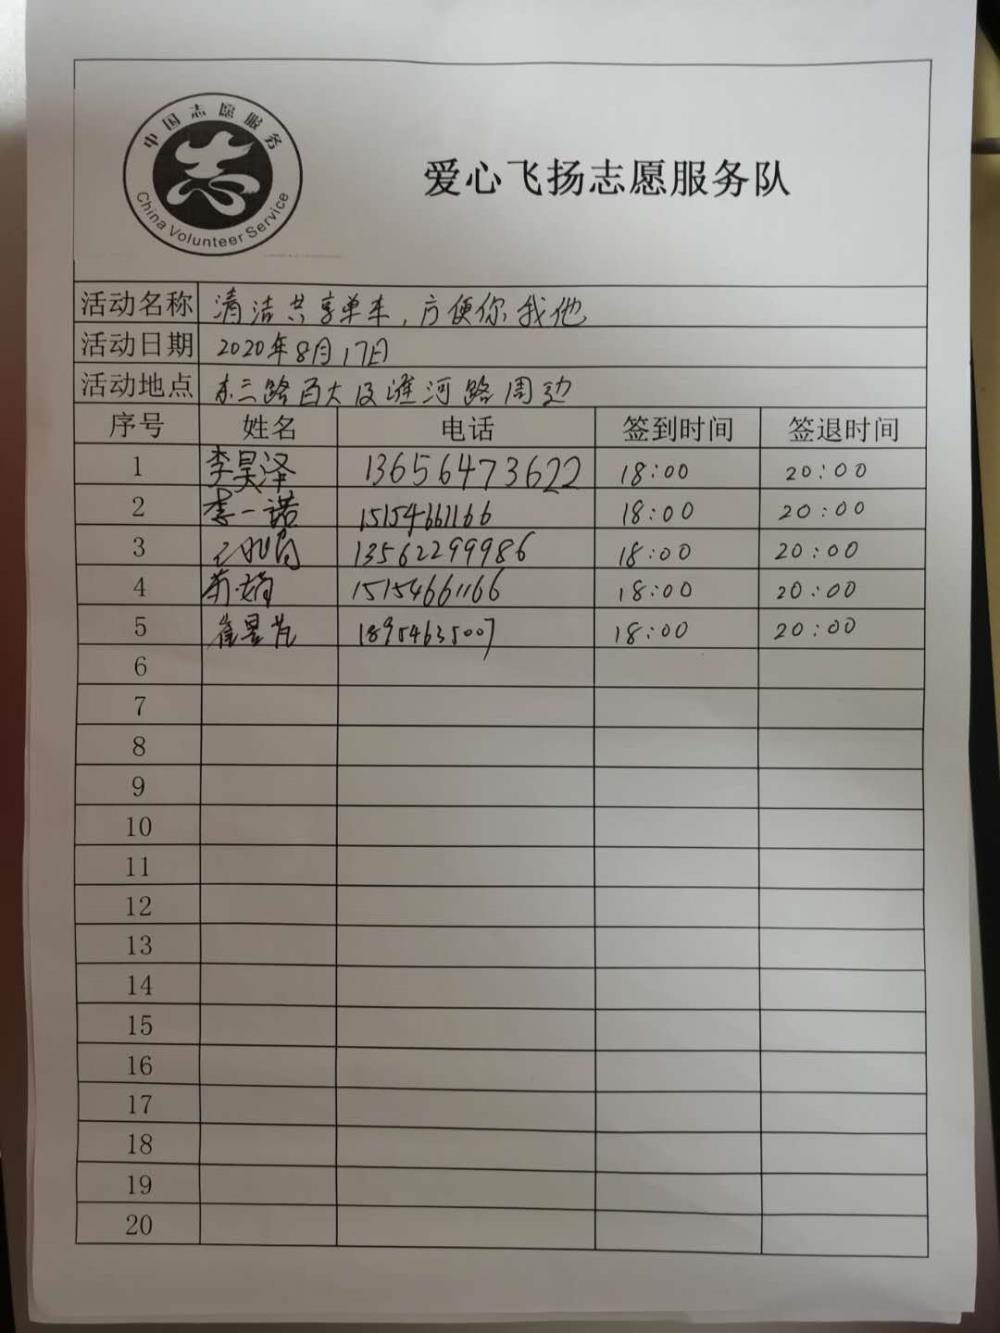 中国志愿服务
志
China Volunteer Service
爱心飞扬志愿服务队
活动名称 清洁共享单车,方便你我他
活动日期 2020年8月17日
活动地点 东三路百大及淮河路周边
序号 姓名 电话 签到时间 签退时间
1 李昊泽 13656473622 18:00 20:00
2 李一诺 15154661166 18:00 20:00
3 13562299986 18:00 20:00
4 15154661166 18:00 20:00
5 18954635007 18:00 20:00
6
7
8
9
10
11
12
13
14
15
16
17
18
19
20